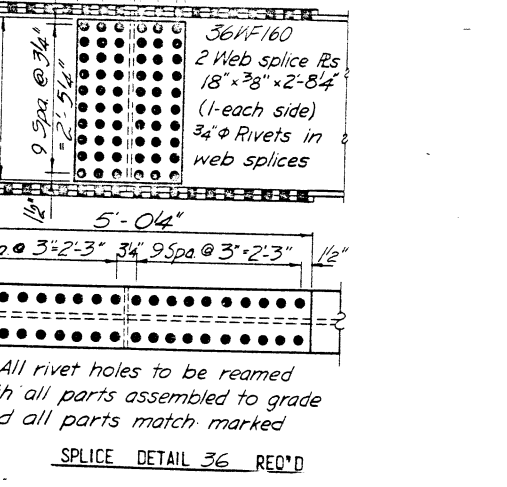 36WF160
2 Web splice PLs
18" x 3/8" x 2'-8 1/4"
(1-each side)
3/4" Φ Rivets in
web splices
9 Spa. @ 3 1/4"
= 2'-5 1/4"
1 1/2"
5'-0 1/4"
@ 3"=2'-3" 3 1/4" 9 Spa. @ 3"=2'-3" 1 1/2"
All rivet holes to be reamed
all parts assembled to grade
all parts match marked
SPLICE DETAIL 36 REQ'D